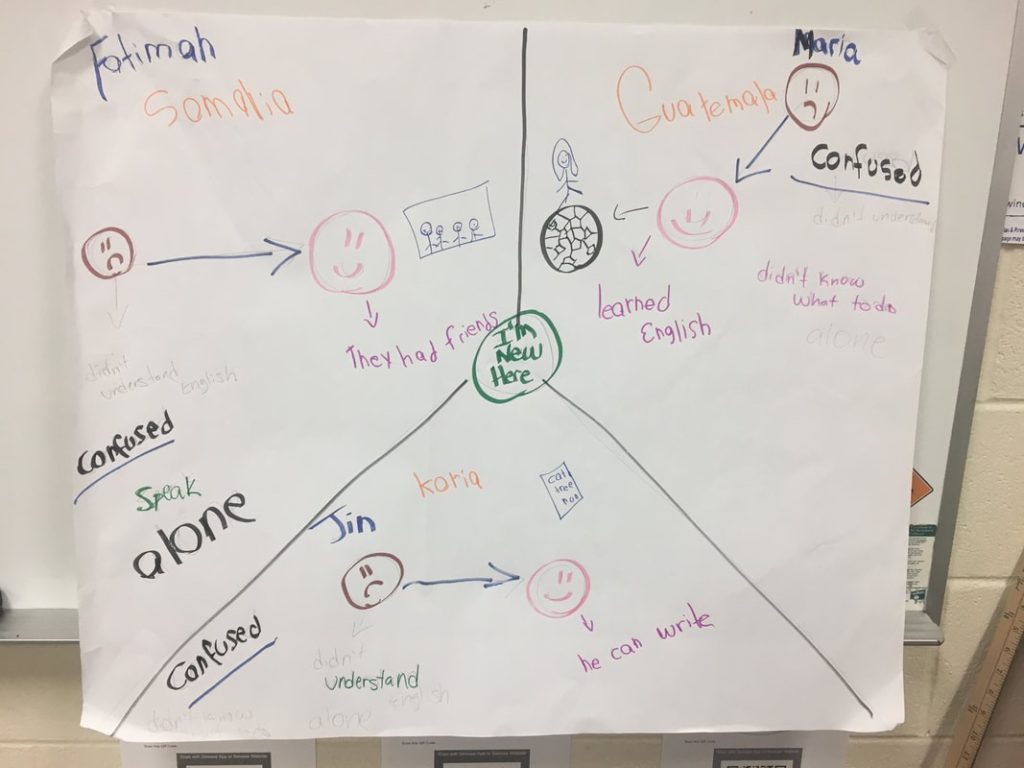 Fatimah
Somalia
They had friends
didn't
understand English
Confused
Speak
alone
Maria
Guatemala
Confused
didn't understand
learned
English
didn't know
what to do
alone
I'm
New
Here
Koria
Jin
cat
tree
Confused
didn't
understand
English
alone
he can write